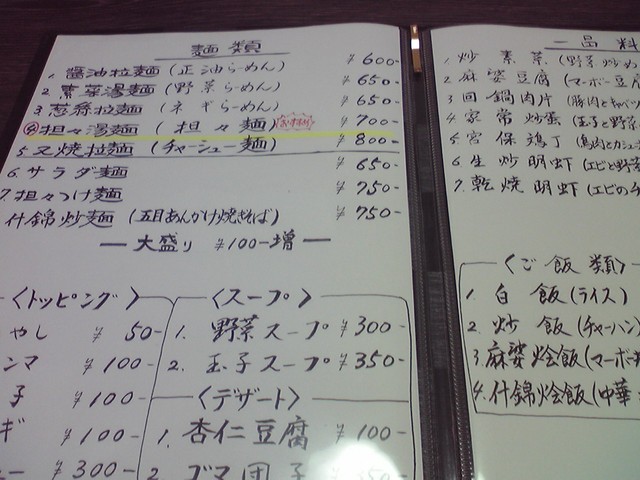 麺類
1. 醤油拉麺 (正油らーめん) ¥600-
2. 素菜湯麺 (野菜らーめん) ¥650-
3. 葱油拉麺 (ネギらーめん) ¥650-
④ 担々湯麺 (担々麺) ¥700-
5. 叉焼拉麺 (チャーシュー麺) ¥800-
6. サラダ麺 ¥650-
7. 担々つけ麺 ¥750-
什錦炒麺 (五目あんかけ焼きそば) ¥750-
― 大盛り ¥100-増 ―
〈トッピング〉
やし ¥50-
ンマ ¥100-
子 ¥100-
ギ ¥100-
ュー ¥300-
〈スープ〉
1. 野菜スープ ¥300-
2. 玉子スープ ¥350-
〈デザート〉
1. 杏仁豆腐 ¥100-
2 ゴマ団子
一品料
1. 炒素菜 (野菜炒め
2. 麻婆豆腐 (マーボー豆
3. 回鍋肉片 (豚肉とキャベ
4. 家常炒蛋 (玉子と野
5. 宮保鶏丁 (鳥肉とカシュー
6. 生炒明虾 (エビと野菜
7. 乾焼明虾 (エビの
〈ご飯類〉
1 白飯 (ライス)
2. 炒飯 (チャーハン
3. 麻婆烩飯 (マーボ
4. 什錦烩飯 (中華